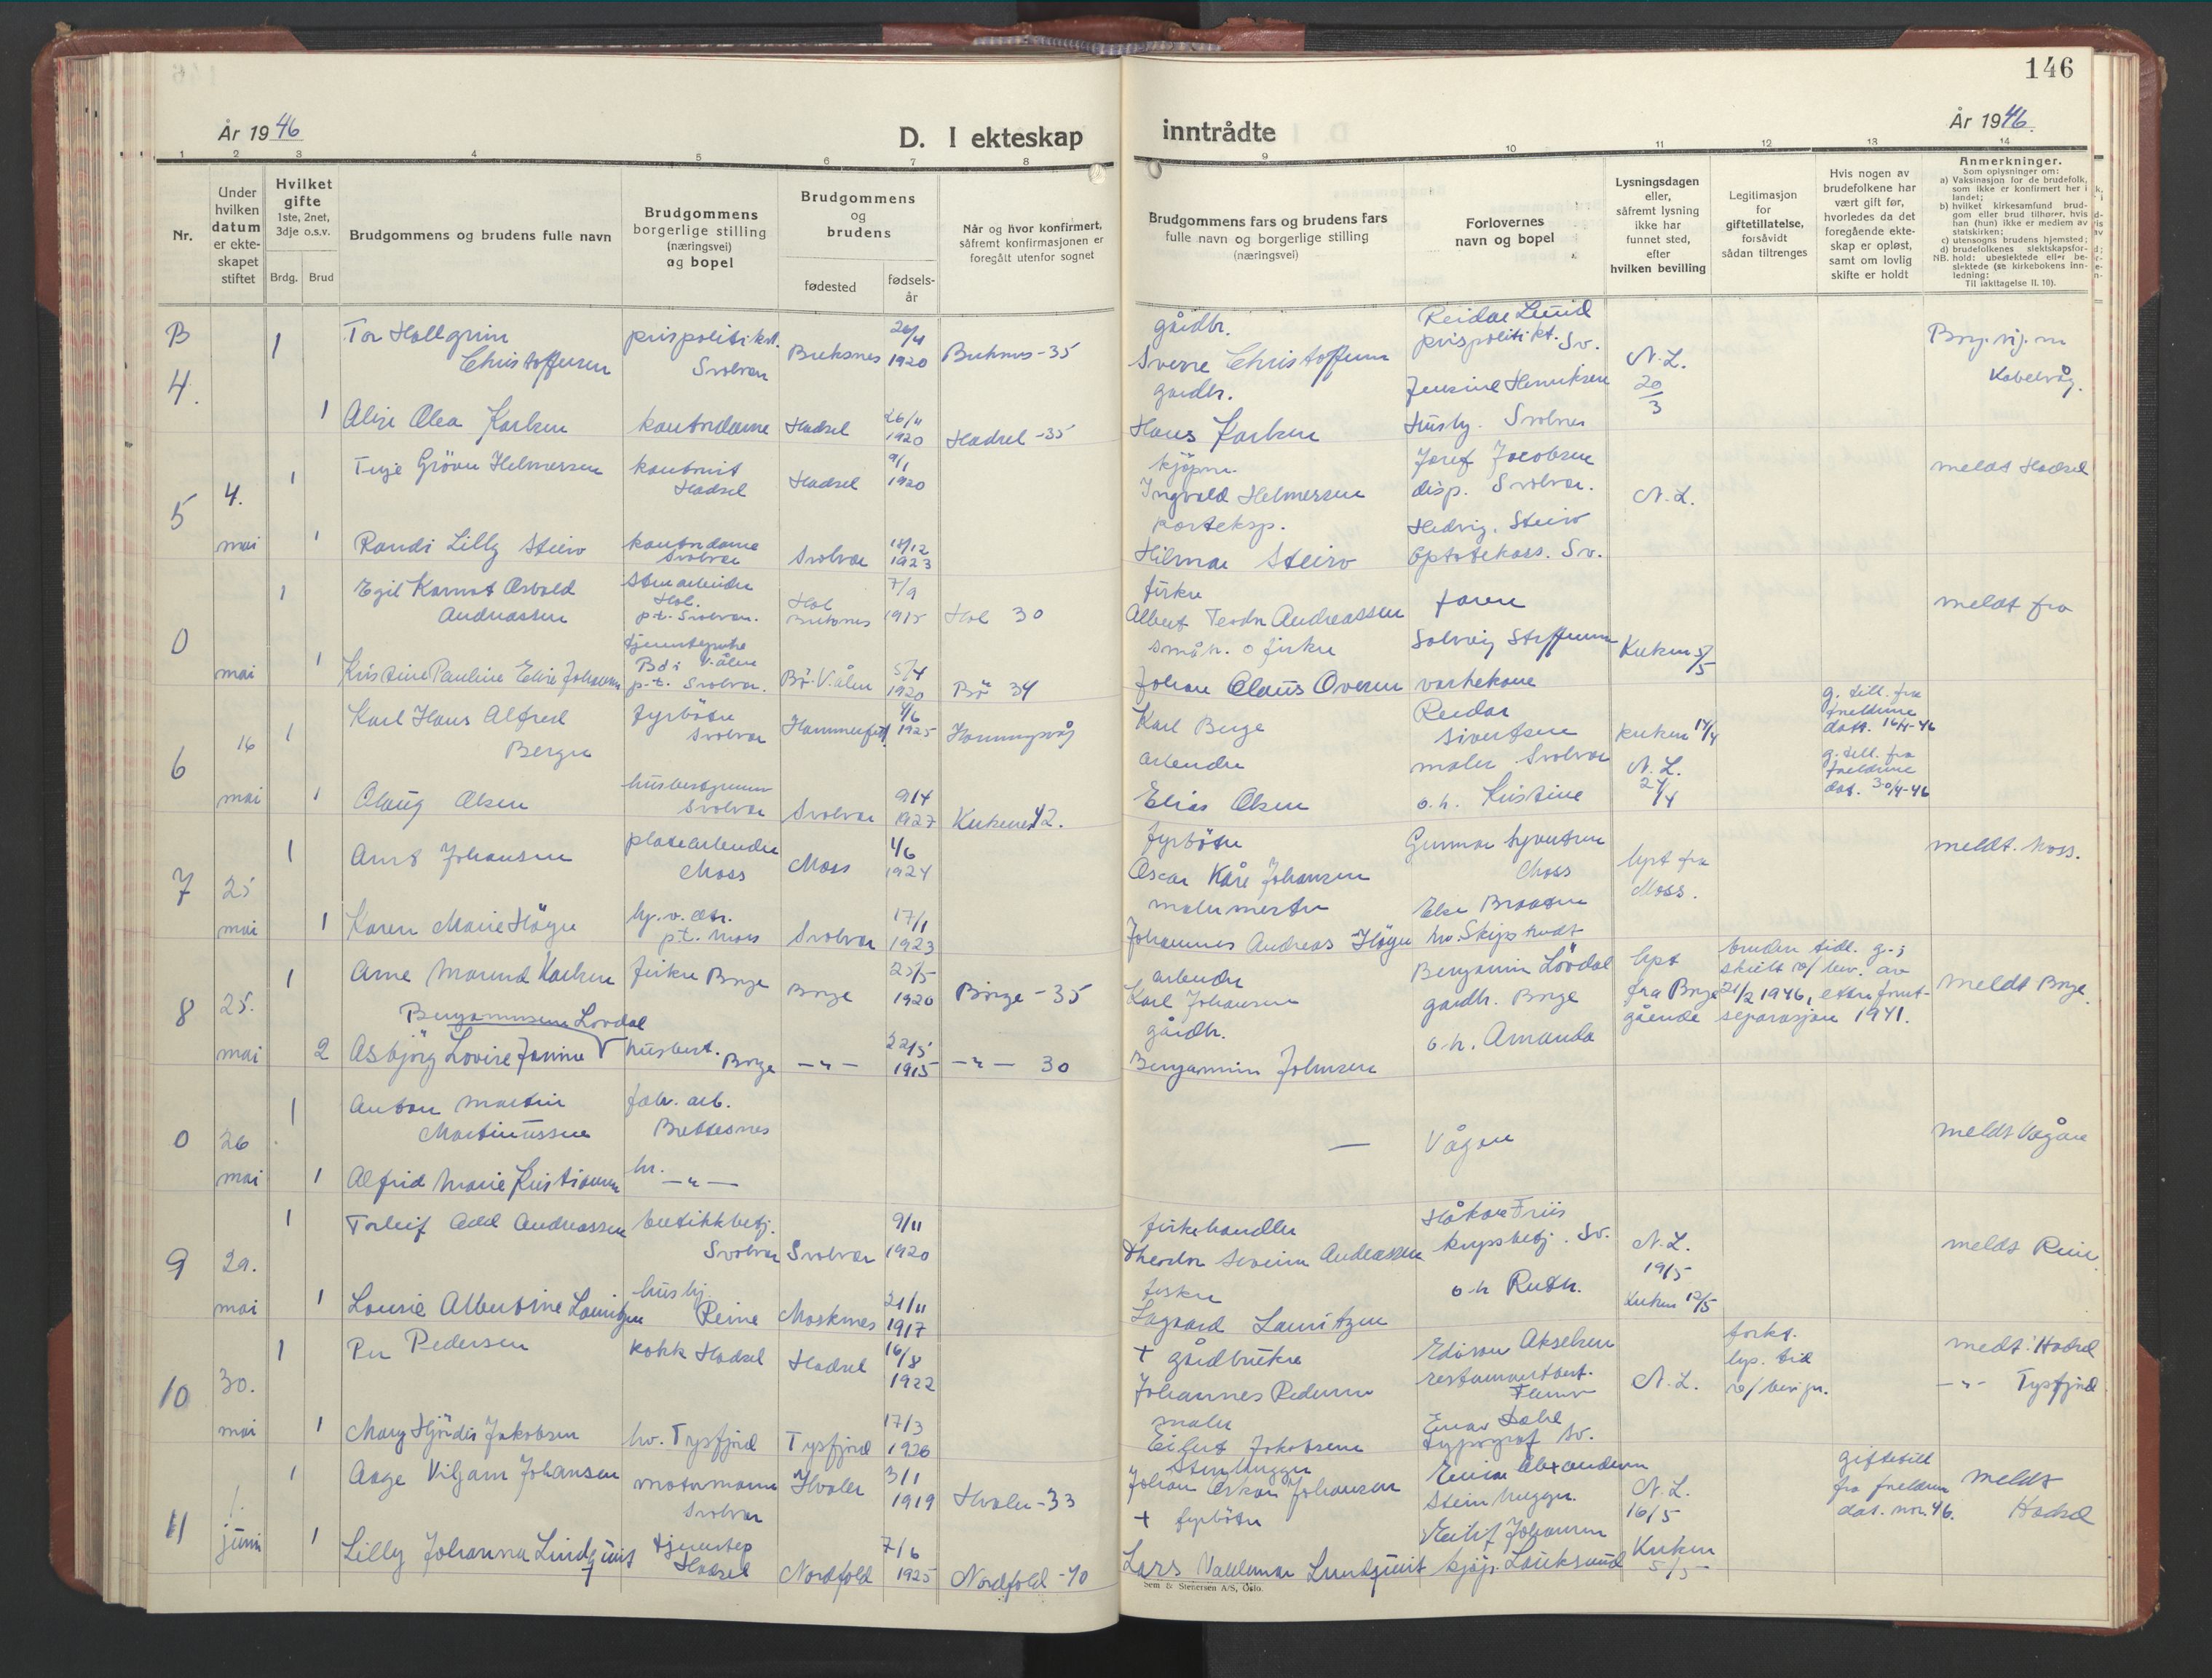 146
År 1946
D. I ekteskap inntrådte
År 1946.
1 2 3 4 5 6 7 8 9 10 11 12 13 14
Nr.
Under
hvilken
datum
er ekte-
skapet
stiftet
Hvilket
gifte
1ste, 2net,
3dje o.s.v.
Brdg. Brud
Brudgommens og brudens fulle navn
Brudgommens
borgerlige stilling
(næringsvei)
og bopel
Brudgommens
og
brudens
fødested
fødsels-
år
Når og hvor konfirmert,
såfremt konfirmasjonen er
foregått utenfor sognet
Brudgommens fars og brudens fars
fulle navn og borgerlige stilling
(næringsvei)
Forlovernes
navn og bopel
Lysningsdagen
eller,
såfremt lysning
ikke har
funnet sted,
efter
hvilken bevilling
Legitimasjon
for
giftetillatelse,
forsåvidt
sådan tiltrenges
Hvis nogen av
brudefolkene har
vært gift før,
hvorledes da det
foregående ekte-
skap er opløst,
samt om lovlig
skifte er holdt
Anmerkninger.
Som oplysninger om:
a) Vaksinasjon for de brudefolk,
som ikke er konfirmert her i
landet;
b) hvilket kirkesamfund brud-
gom eller brud tilhører, hvis
han (hun) ikke er medlem av
statskirken;
c) utensogns brudens hjemsted;
d) brudefolkenes slektskapsfor-
NB. hold: ubeslektede eller be-
slektede (se kirkebokens inn-
ledning:
Til iakttagelse II. 10).
B
4.
1 Tor Hallgrim
Christoffersen
prispolitikst.
Svolvær
Buksnes
26/4
1920
Buksnes - 35
gårdbr.
Sverre Christoffersen
Reidar Lund
prispolitikt. Sv.
N. L.
20
3
Borg. vig. nr
Kabelvåg.
1 Alise Olea Karlsen
kontordame
Hadsel
26/11
1920
Hadsel - 35
gardbr.
Hans Karlsen
Jensine Henriksen
Husby. Svolvær
5
4.
mai
1 Terje Grövn Helmersen
kontorist
Hadsel
Hadsel
9/1
1920
kjöpm.
Ingvald Helmersen
Josef Jacobsen
disp. Svolvær.
N. L.
meldt Hadsel
1 Randi Lilly Steiro
kontordame
Svolvær
Svolvær
18/12
1923
posteksp.
Hilmar Steiro
Hedvig. Steiro
Apotekass. Sv.
0
mai
1 Egil Kornat Osvald
Andreassen
Stenarbeider
Hol.
p.t. Svolvær.
Hol
Buksnes
7/9
1915
Hol 30
fisker
Albert Teodor Andreassen
faren
meldt fra
1 Kristine Pauline Elise Johansen
tjenestepike
Bö i V.ålen
p.t. Svolvær.
Bö. V.ålen
5/4
1920
Bö 34
småbr. o fisker
Johan Claus Oversen
Solveig Steffensen
vaskekone
Kirken 5/5
6
16
mai
1 Karl Hans Alfred
Berger
fyrböter
Svolvær
Hammerfest
4/6
1925
Honningsvåg
Karl Berge
Reidar
Sivertsen
maler Svolvær
kirken 14/4
g. till. fra
foreldrene
datr. 16/4-46
1 Olaug Olsen
husbestyrer
Svolvær
Svolvær
9/4
1927
Kirkenes 42.
arbeider
Elias Olsen
o.h. Kristine
N. L.
24/4
g. till. fra
foreldrene
dat. 30/4-46
7
25
mai
1 Arnt Johansen
platearbeider
Moss
Moss
4/6
1924
fyrböter
Oscar Kåre Johansen
Gunnar Syvertsen
Moss
lyst fra
Moss.
meldt. Moss.
1 Karen Marie Höyer
hj. v. dtr.
p.t. Moss
Svolvær
17/1
1923
malermester
Johannes Andreas Höyer
Else Braaten
hv. Skiptvedt
8
25.
mai
1 Arne Marend Karlsen
fisker Borge
Borge
25/5
1920
Borge - 35
arbeider
Karl Johansen
Benjamin Lövdal
gardb. Borge
lyst
fra Borge
bruden tidl. g.;
skilt v/ bev. av
21/2 1946, etter forut-
gående separasjon 1941.
meldt Borge
Benjaminsen Lövdal
2 Asbjörg Lovise Janine
husbest.
Borge
-"-
22/5
1915
-"- 30
gårdb.
Benjamin Johnsen
o.h. Amanda
0
26
mai
1 Anton Martin
Martinussen
fabr. arb.
Brettesnes
—
Vågan
meldt Vågan
1 Alfrid Marie Kristiansen
hv.
-"-
9
29.
mai
1 Torleif Adel Andreassen
butikkbetj.
Svolvær
Svolvær
9/11
1920
fiskehandler
Theodor Severin Andreassen
Håkon Friis
krypsbetj. Sv.
N. L.
19/5
meldt Reine
1 Lousie Albertine Lauritzen
husbj
Reine
Moskenes
21/11
1917
fisker
Lagaard Lauritzen
o.h Ruth.
Kirken 12/5
10
30.
mai
1 Per Pedersen
kokk Hadsel
Hadsel
16/8
1922
+ gårdbruker
Johannes Pedersen
Edison Akselsen
restaurantbest.
N. L.
forkt.
lys. tid
v/ bevigr.
medt. Hadsel
-"- Tysfjord
1 Mary Hjördis Jakobsen
hv. Tysfjord
Tysfjord
17/3
1926
maler
Eilert Jakobsen
Einar Dahl
typograf Sv.
11
1.
juni
1 Aage Viljam Johansen
motormann
Svolvær
Hvaler
3/1
1919
Hvaler - 33
Stenhugger
Johan Oskar Johansen
Einar Alexandersen
Steinhugger.
N. L.
16/5
giftetill
fra foreldren
dat. mai. 46.
meldt
Hadsel
1 Lilly Johanna Lindquist
tjenestep
Hadsel
Nordfold
7/6
1925
Nordfold - 40
+ fyrböter
Lars Valdemar Lundquist
Eilif Johansen
kjöp. Lauksund
Kirken
5/5
Sem & Stenersen A/S, Oslo.